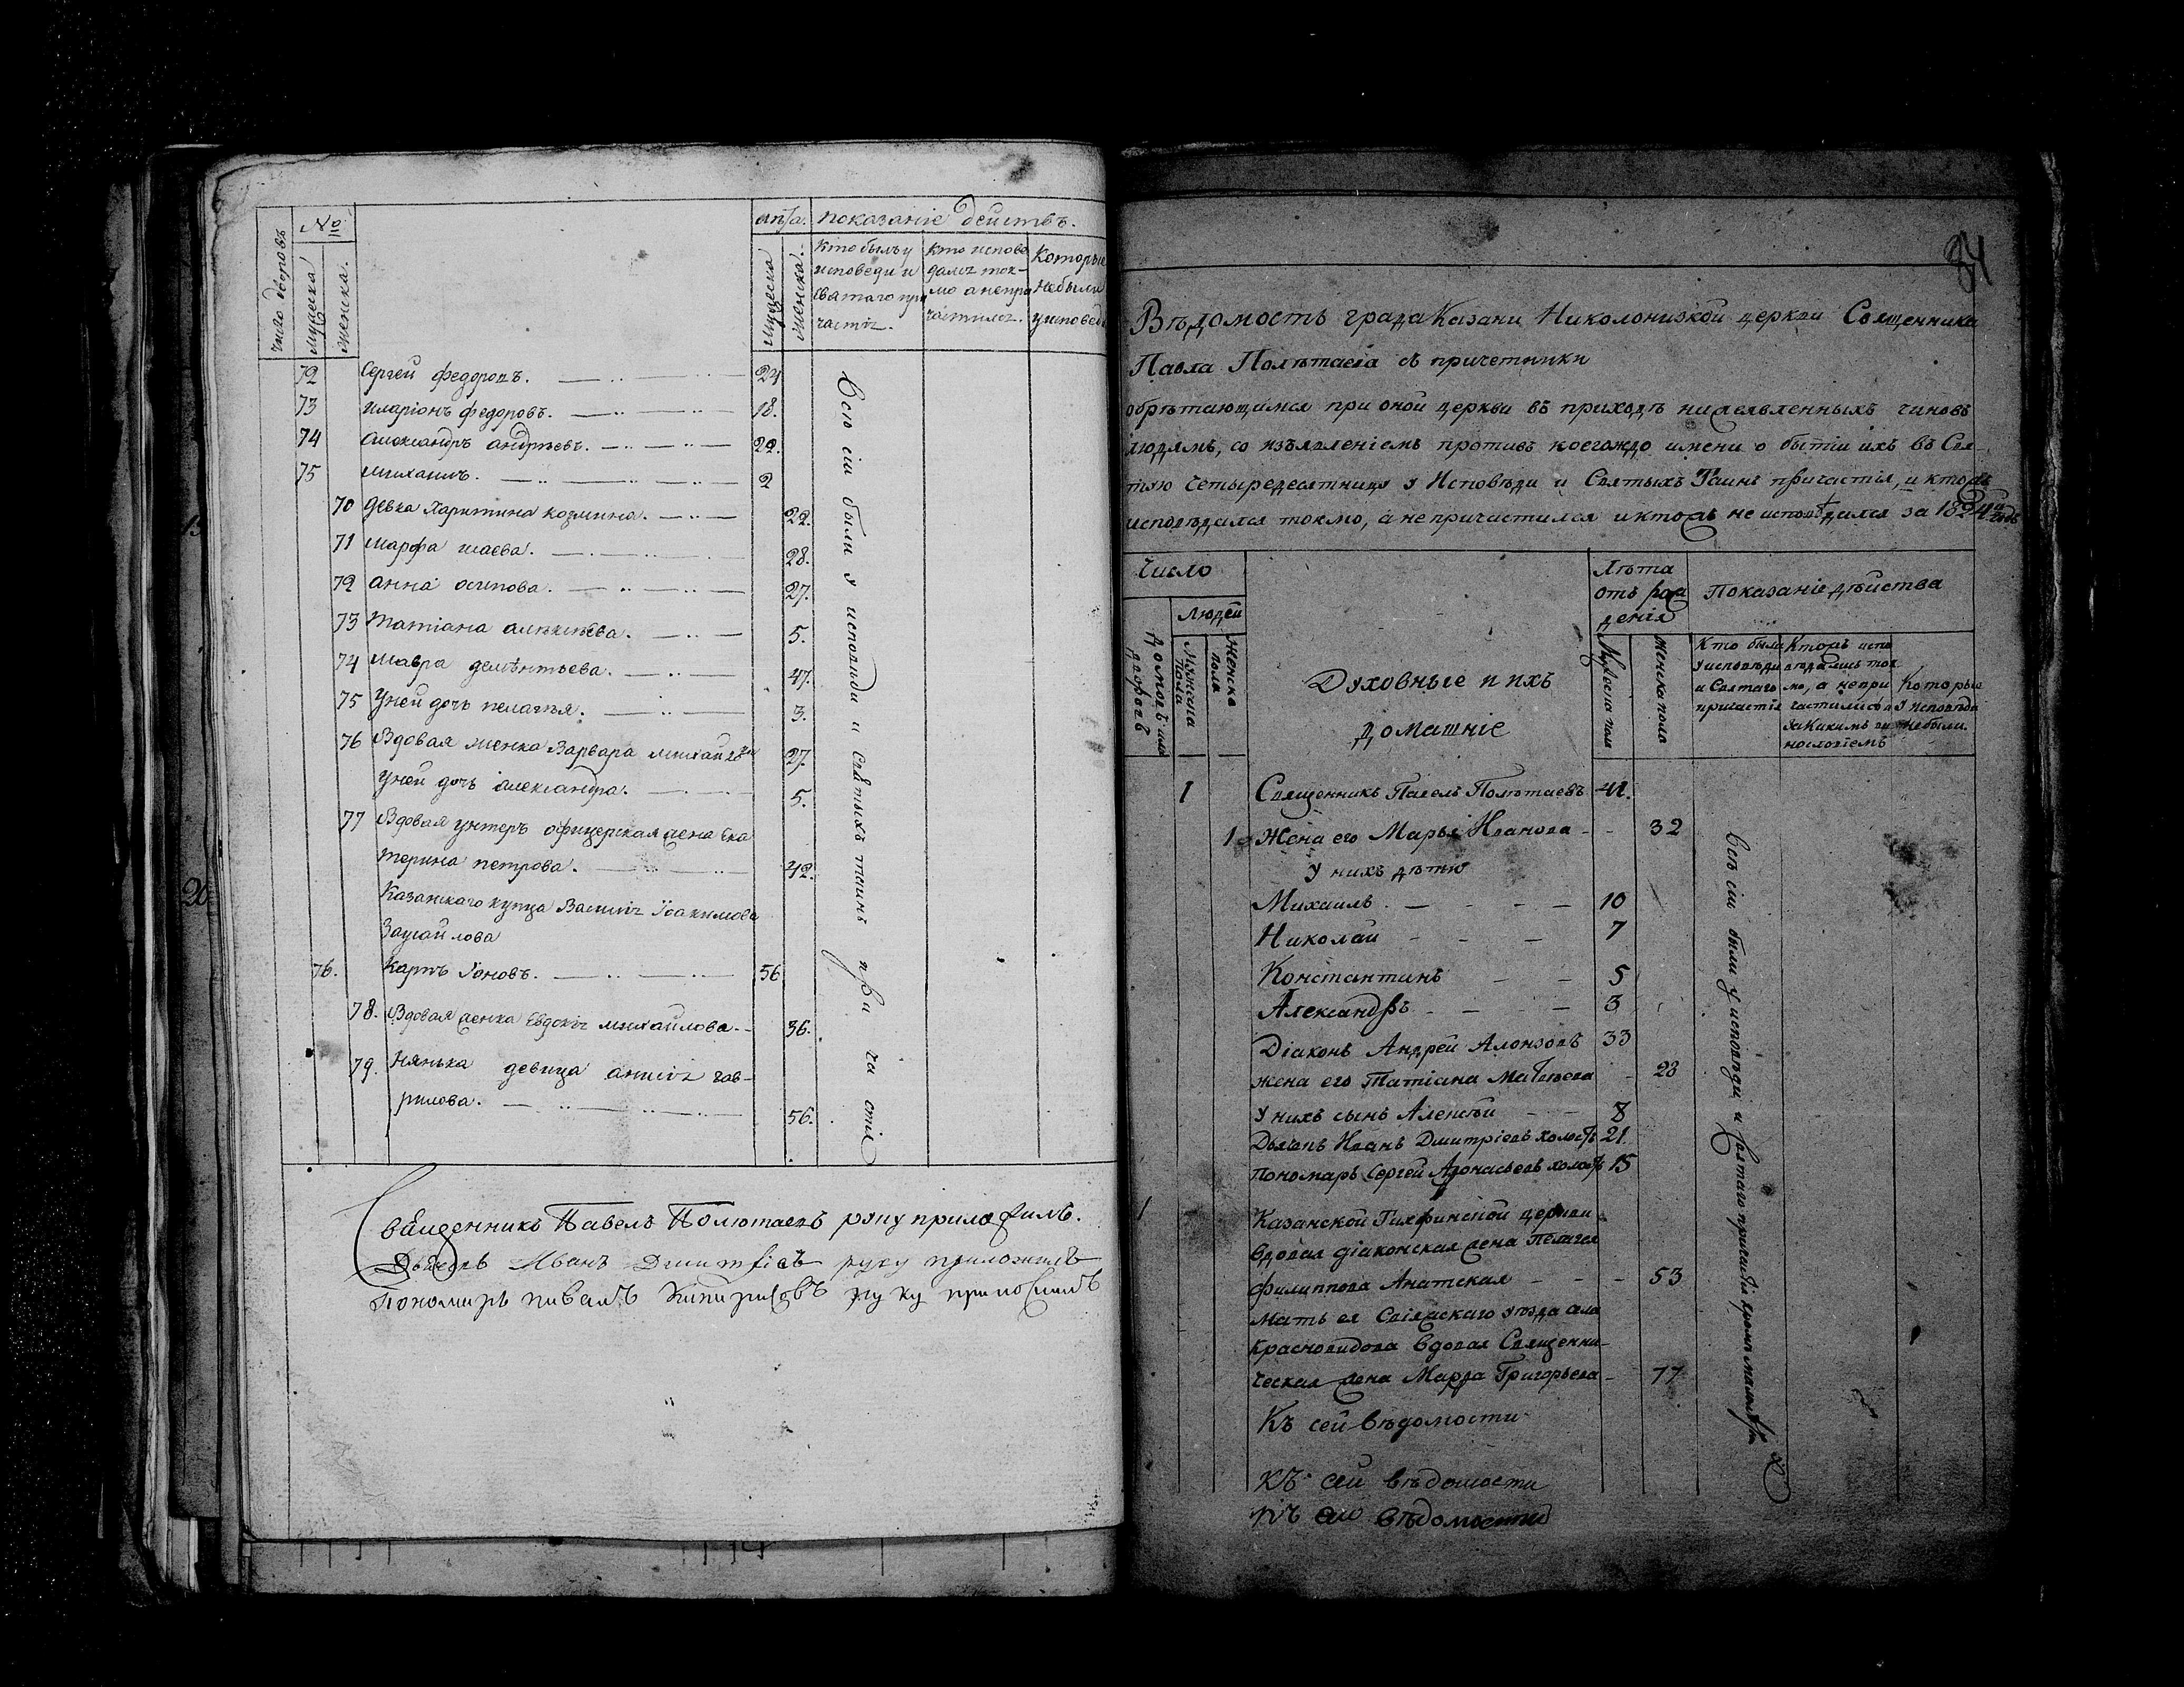 число дворовъ
№
мужеска
женска.
лѣта. показанiе действъ.
мужеска
женска.
кто былъ у исповеди и святаго причастiя.
кто исповедался токмо а непричастился.
Которые небыли уисповеди
72 Сергей федоровъ. 24
73 иларiонъ федоровъ. 18.
74 александръ андрѣевъ. 22.
75 михаилъ. 2
70 девка харитина козмина. 22.
71 марфа исаева. 28.
72 анна осипова. 27.
73 татiана алексѣева. 5.
74 мавра дементьева. 47.
75 Уней дочь пелагѣя. 3.
76 Вдовая женка Варвара михайлова 27.
Уней дочь александра. 5.
77 Вдовая унтеръ офицерская жена Ека
терина петрова. 42.
Казанскаго купца Василiя Iоакимова
Заусайлова
76. Карпъ Iоновъ. 56
78. Вдовая женка Евдокiя михайлова. 36.
79. Нянька девица анисiя гав-
рилова. 56.
Всѣ сiи были у исповѣди и святыхъ таинъ причастiя
Священникъ Павелъ Полѣтаевъ руку приложилъ.
Дьячекъ Иванъ Дмитрiевъ руку приложилъ
Пономарь руку приложилъ
34
Вѣдомость града Казани Николонизкой церкви Священника
Павла Полѣтаева съ причетники
обрѣтающимся при оной церкви въ приходѣ нижеявленныхъ чиновъ
людямъ, со изъявленiемъ противъ коегождо имени о бытiи ихъ въ Свя-
тую Четыредесятницу у Исповѣди и Святыхъ Таинъ причастiя, и ктожъ
исповѣдался токмо, а не причастился и ктожъ не исповѣдался за 1824й годъ
Число
Людей
Домовъ или дворовъ
Мужеска пола
Женска пола
Духовные и ихъ
домашнiе
Лѣта
отъ рож
денiя
Мужеска пола
Женска пола
Показанiе дѣйства
Кто были уисповѣди и Святаго причастiя
Ктожъ исповѣдались токмо, а непричастились и закакимъ винословiемъ
Которые уисповѣди небыли.
1 Священникъ Павелъ Полѣтаевъ 41.
1 Жена его Марья Иванова 32
У нихъ дѣти
Михаилъ 10
Николай 7
Константинъ 5
Александръ 3
Дiаконъ Андрей Алонзовъ 33
жена его Татiана Матвѣева 28
У нихъ сынъ Алексѣй 8
Дьячекъ Иванъ Дмитрiевъ холостъ 21.
Пономарь Сергей Афонасьевъ холостъ 15
1 Казанской Тихфинской церкви
вдовая дiаконская жена Пелагея
Филиппова Анатская 53
Мать ея Свiяжскаго уѣзда села
Красновидова вдовая Священни-
ческая жена Марфа Григорьева 77
Всѣ сiи были у исповѣди и Святаго причастiя кромѣ
Къ сей вѣдомости
Къ сей вѣдомости
Къ сей вѣдомости